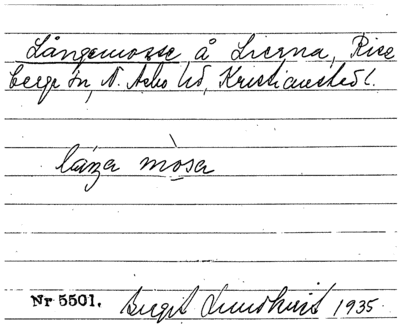 Långemosse å Lierna, Rise
berge sn, N. Åsbo hd, Kristiansteds l.
långa mòsa
Nr 5501. Bengt Lundkvist 1935.